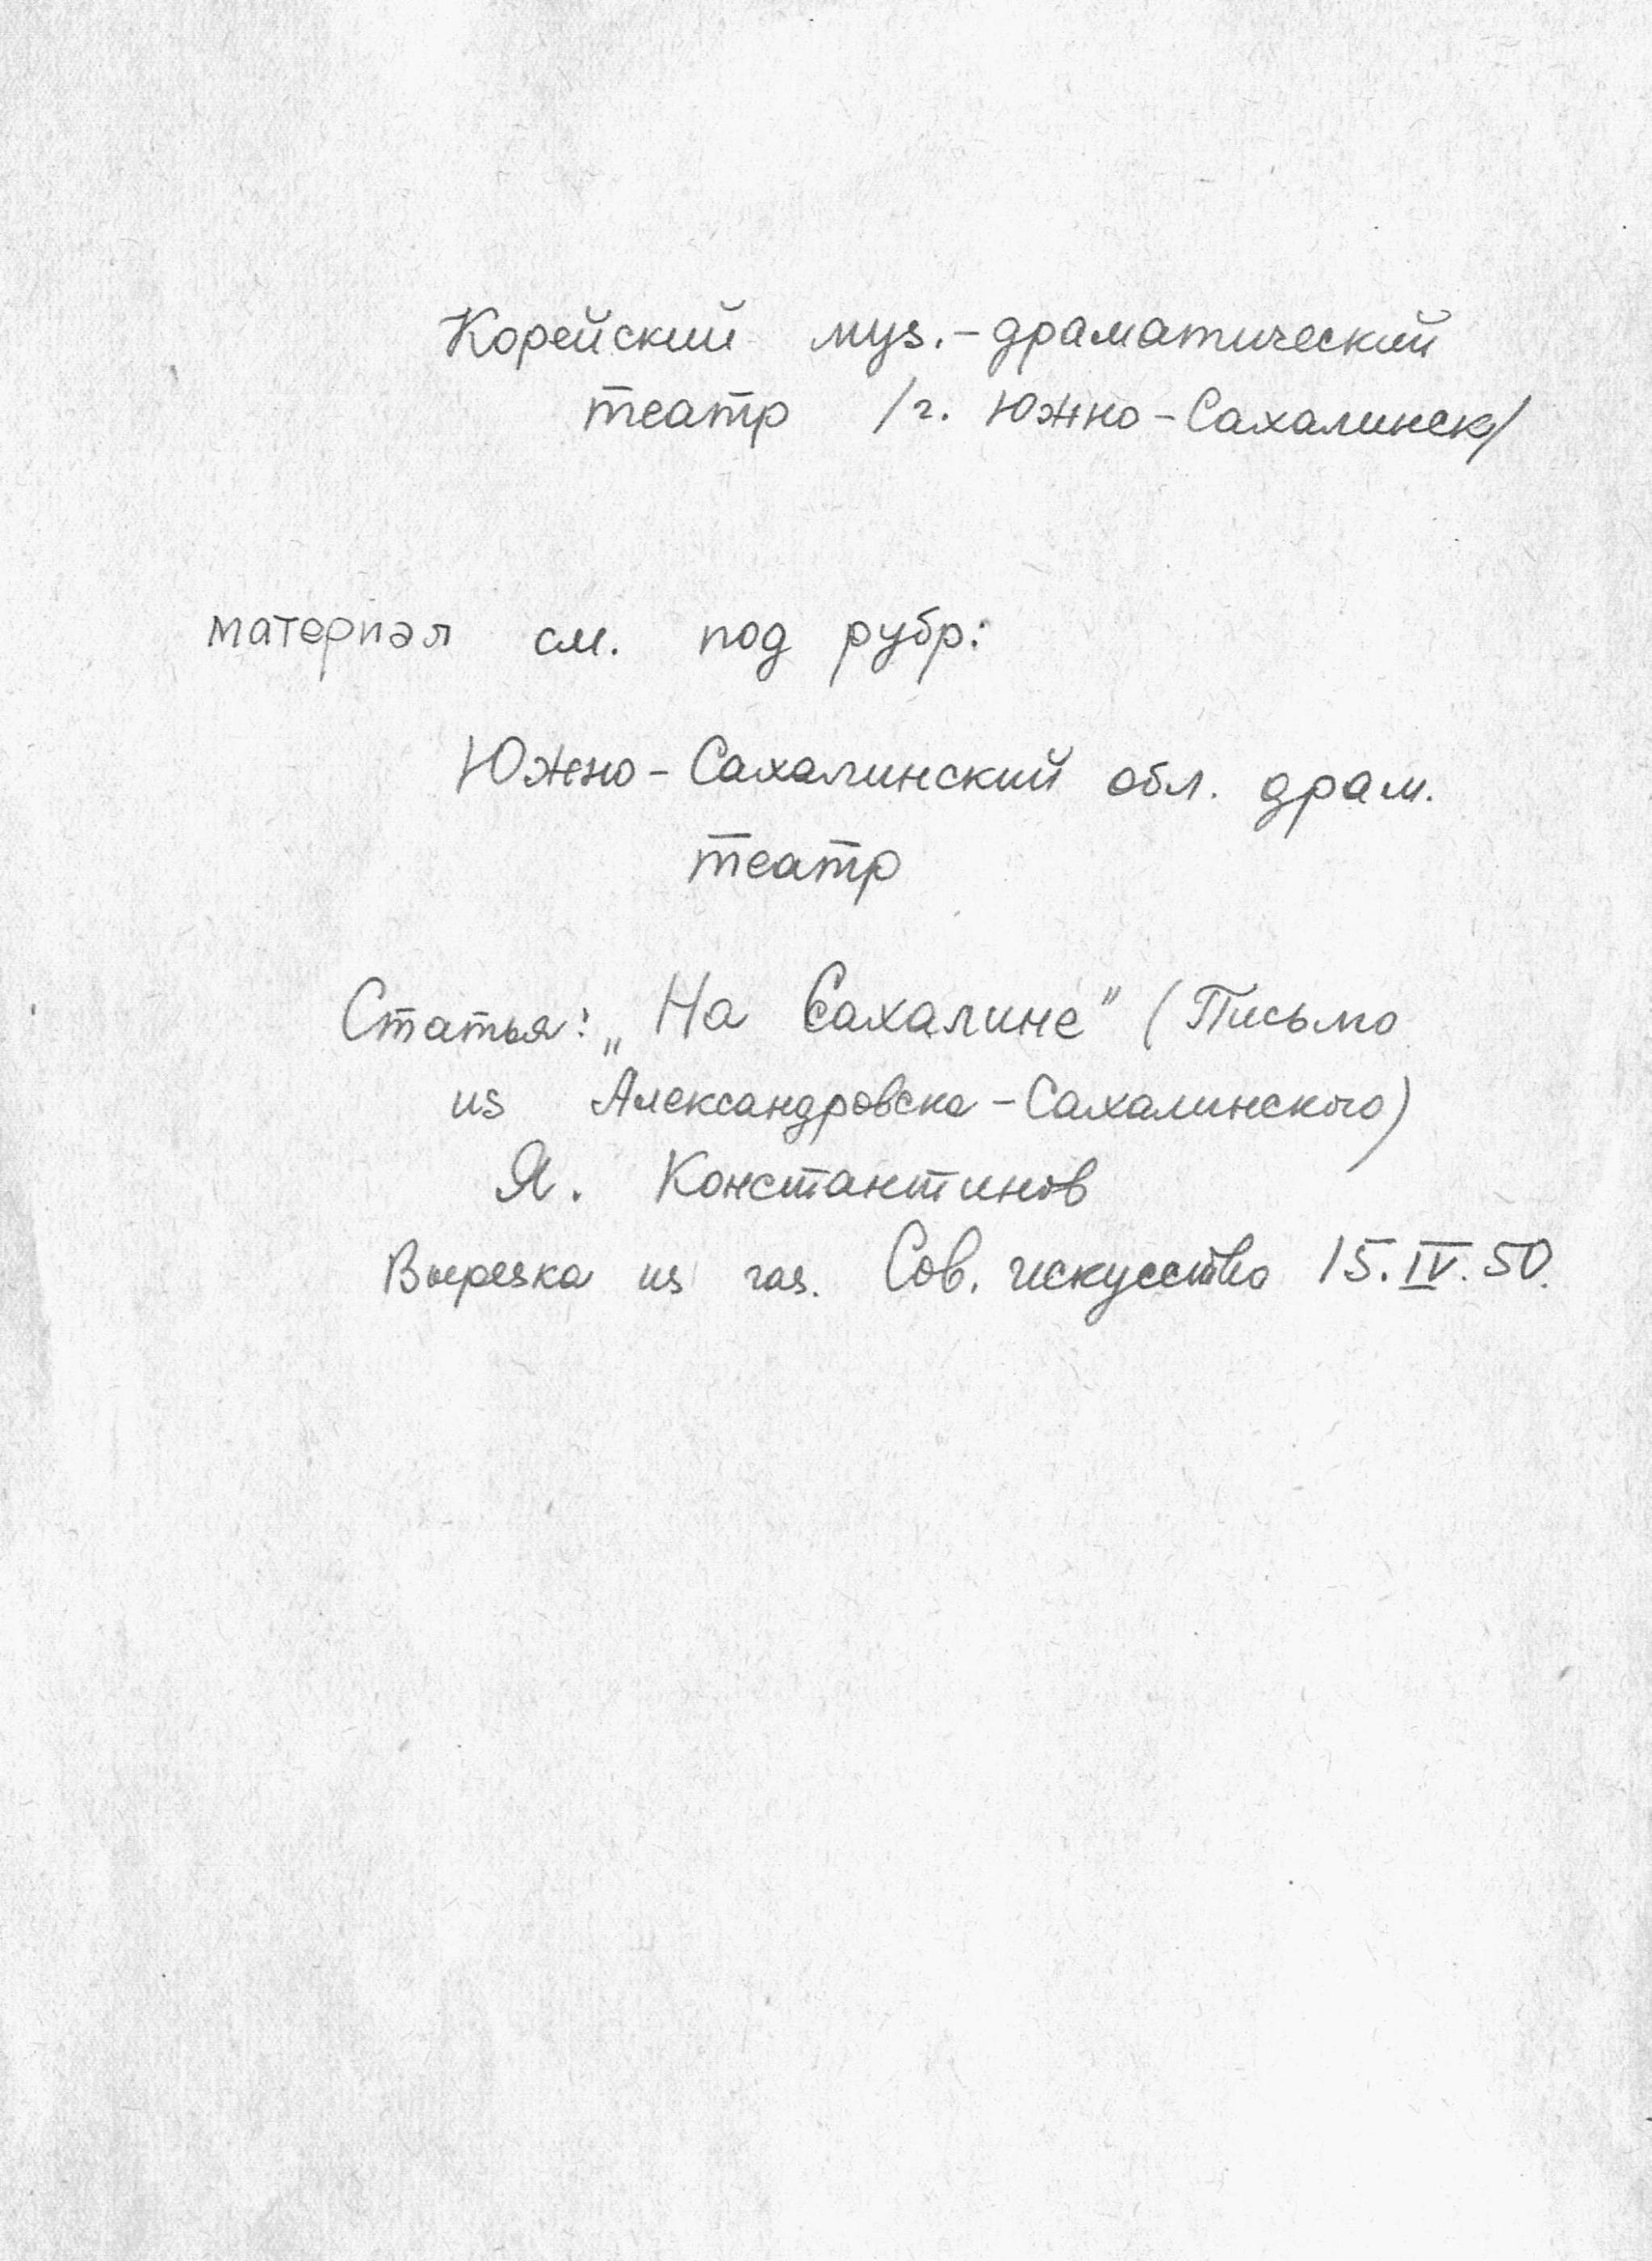 Корейский муз.-драматический
театр /г. Южно-Сахалинск/
материал см. под рубр:
Южно-Сахалинский обл. драм.
театр
Статья: „На Сахалине" (Письмо
из Александровска-Сахалинского)
Я. Константинов
Вырезка из газ. Сов. искусство 15.IV.50.